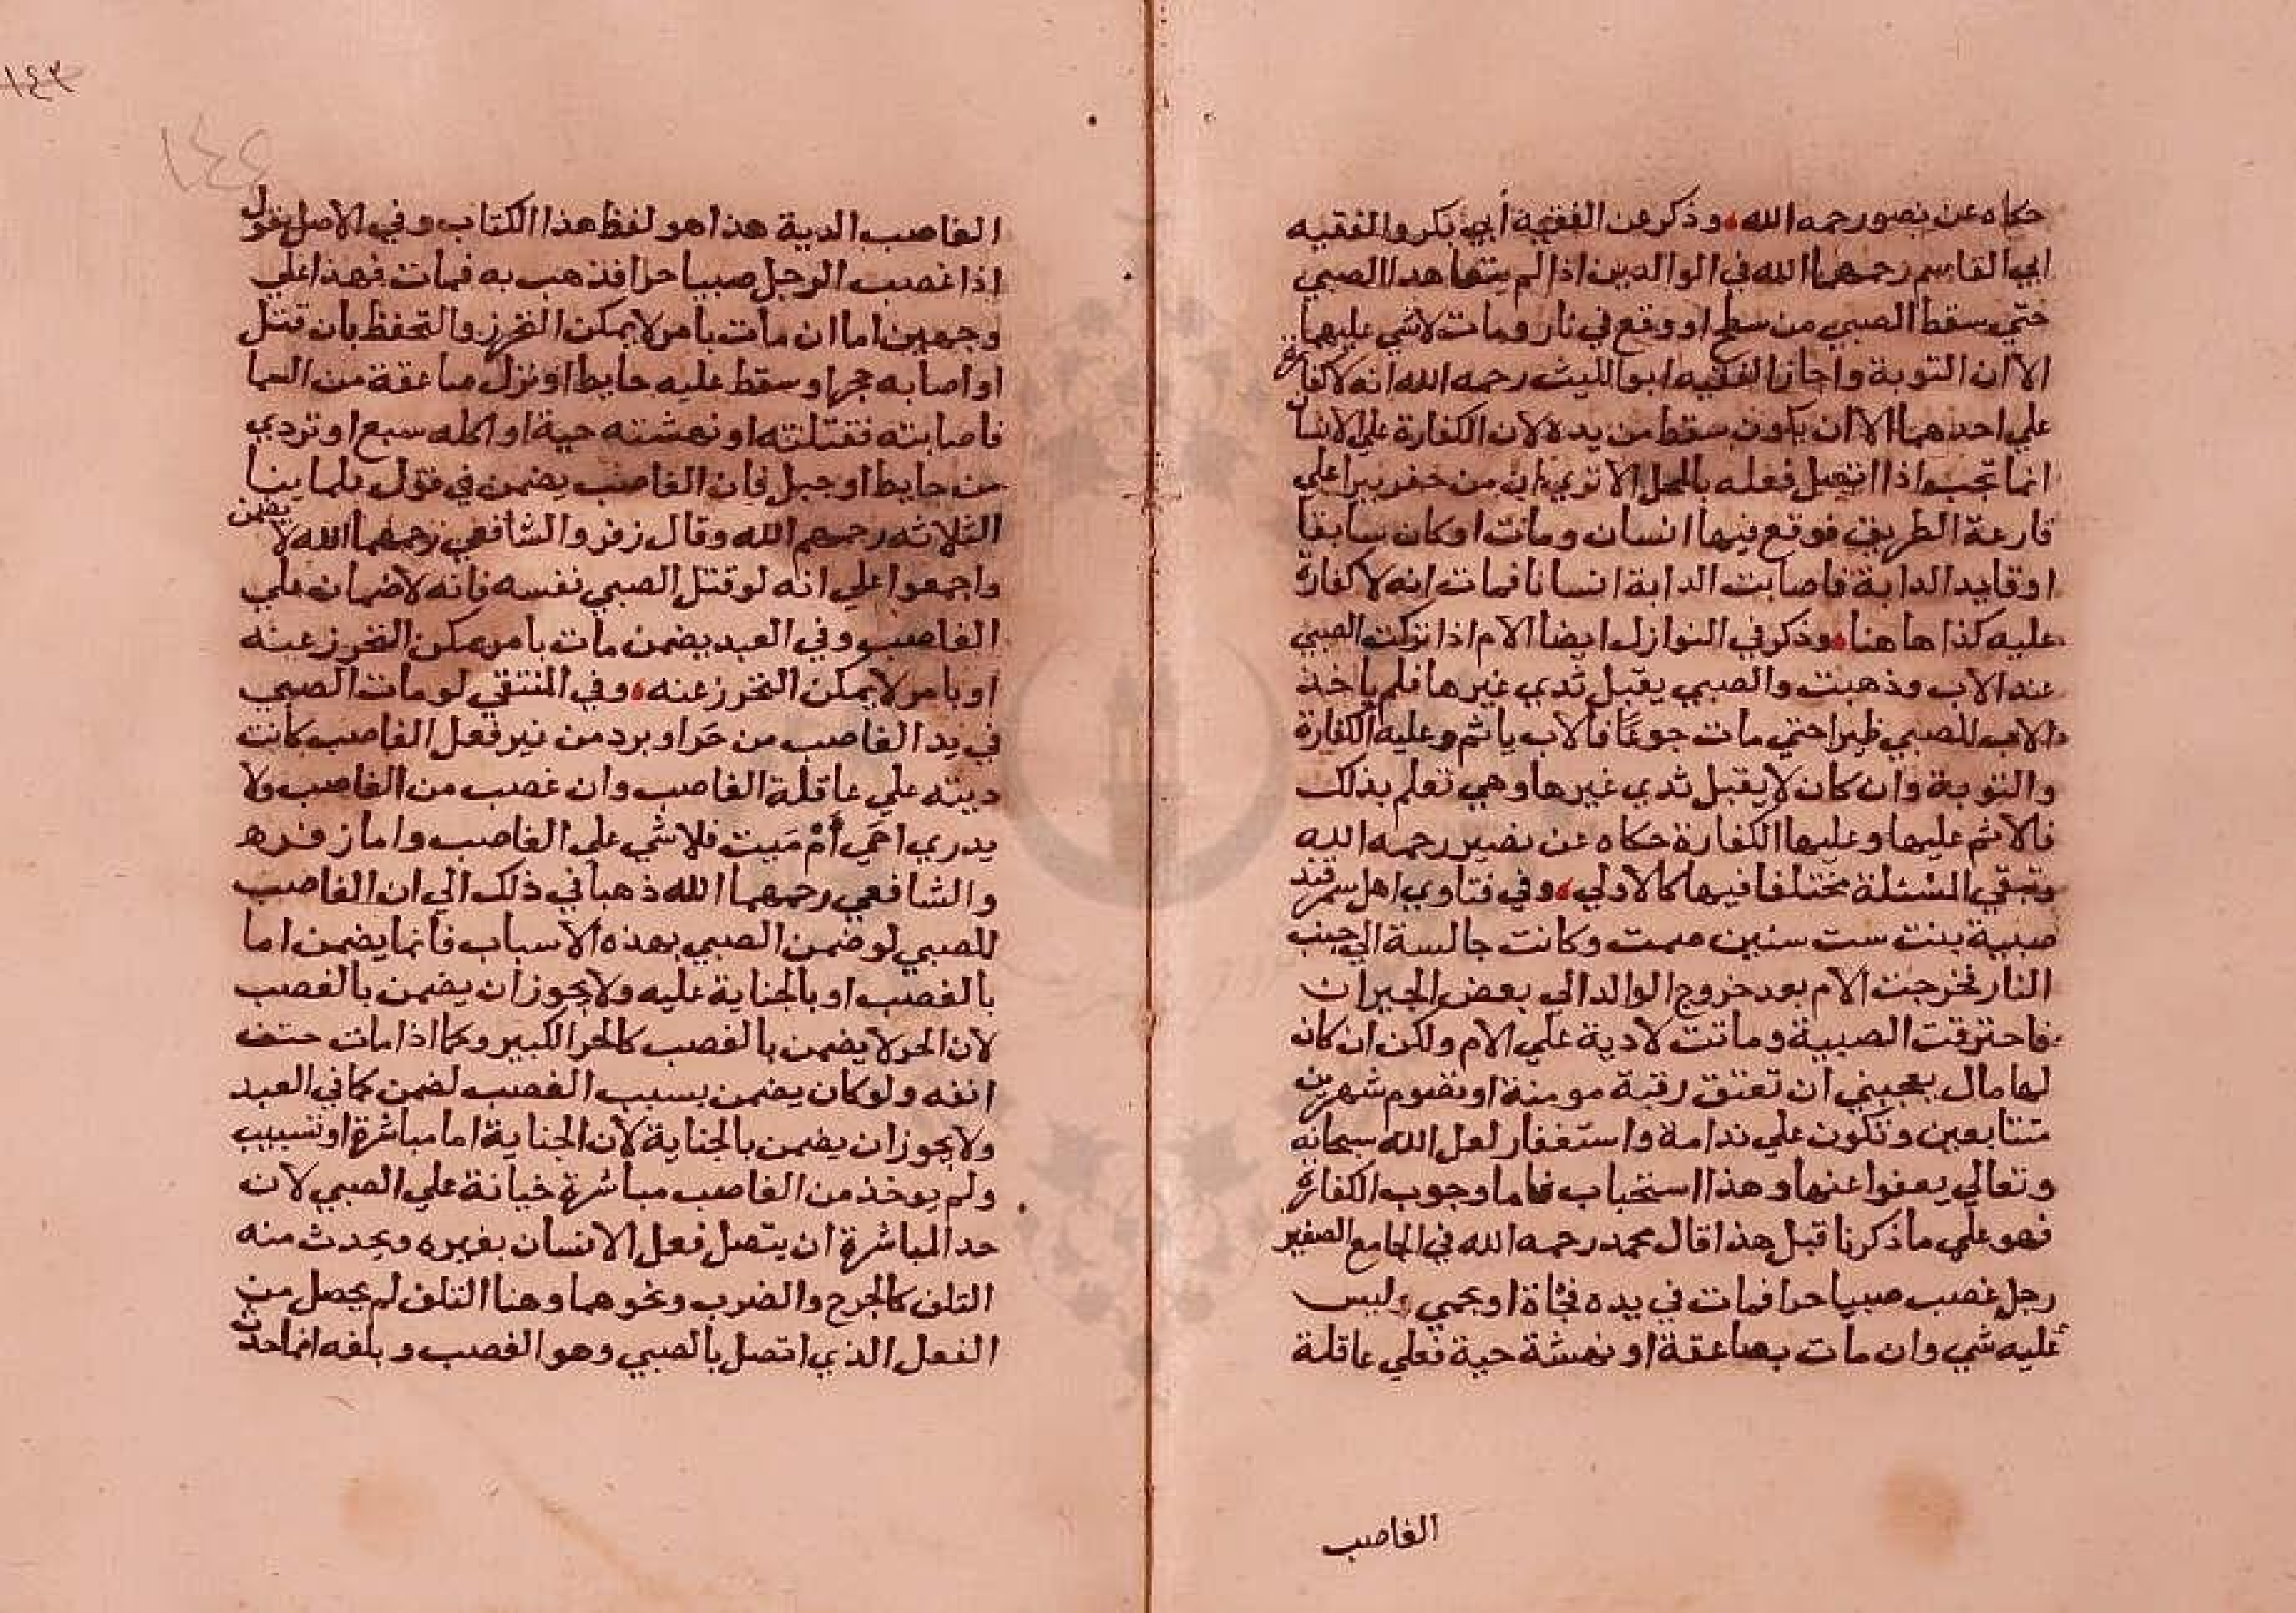 حكاه عن نصور رحمه الله وذكر عن الفقيه أبي بكر والفقيه
ابي القاسم رحمهما الله في الوالدين اذا لم يتعاهدا الصبي
حتي سقط الصبي من سطح او وقع في نار ومات لاشي عليهما
الا ان التوبة واجاز الفقيه ابو الليث رحمه الله انه لا كفارة
علي احدهما الا ان يكون سقط من يده لان الكفارة علي الانسا
انما تجب اذا اتصل فعله بالمحل الا تري ان من حفر بيرا علي
قارعة الطريق فوقع فيها انسان ومات او كان سابقا
او قايد الدابة فاصابت الدابة انسانا فمات انه لا كفارة
عليه كذا هاهنا وذكر في النوازل ايضا الام اذا تركت الصبي
عند الاب وذهبت والصبي يقبل ثدي غيرها فلم ياخذ
الاب للصبي ظيرا حتي مات جوعًا فالاب ياثم وعليه الكفارة
والتوبة وان كان لا يقبل ثدي غيرها وهي تعلم بذلك
فالاثم عليها وعليها الكفارة حكاه عن نصير رحمه الله
وتبقي المسئلة مختلفا فيها كالاولي وفي فتاوي اهل سمرقند
صبية بنت ست سنين وكانت جالسة الي جنب
النار فخرجت الام بعد خروج الوالد الي بعض الجيران
فاحترقت الصبية وماتت لا دية علي الام ولكن ان كان
لها مال يعجبني ان تعتق رقبة مومنة او تصوم شهرين
متتابعين وتكون علي ندامة واستغفار لعل الله سبحانه
وتعالي يعفوا عنها وهذا استحباب فاما وجوب الكفارة
فهو علي ما ذكرنا قبل هذا قال محمد رحمه الله في الجامع الصغير
رجل غصب صبيا حرا فمات في يده فجاة او بحمي وليس
عليه شي وان مات بصاعقة او نهشة حية فعلي عاقلة
الغاصب
١٤٣
١٤٤
الغاصب الدية هذا هو لفظ هذا الكتاب وفي الاصل يقول
اذا غصب الرجل صبيا حرا فذهب به فمات فهذا علي
وجهين اما ان مات بامر لا يمكن التحرز والتحفظ بان قتل
او اصابه حجر او سقط عليه حايط او نزل صاعقة من السما
فاصابته فقتلته او نهشته حية او اكله سبع او تردي
من حايط او جبل فان الغاصب يضمن في قول علماينا
الثلاثه رحمهم الله وقال زفر والشافعي رحمهما الله لا يضمن
واجمعوا علي انه لو قتل الصبي نفسه فانه لا ضمان علي
الغاصب وفي العبد يضمن مات بامر يمكن التحرز عنه
او بامر لا يمكن التحرز عنه وفي المنتقي لو مات الصبي
في يد الغاصب من حَر او برد من غير فعل الغاصب كانت
ديته علي عاقلة الغاصب وان غصب من الغاصب ولا
يدري احَي أمْ مَيت فلا شي علي الغاصب واما زفر
والشافعي رحمهما الله ذهبا في ذلك الي ان الغاصب
للصبي لو ضمن الصبي بهذه الاسباب فانما يضمن اما
بالغصب او بالجناية عليه ولا يجوز ان يضمن بالغصب
لان الحر لا يضمن بالغصب كالحر الكبير وكما اذا مات حتف
انفه ولو كان يضمن بسبب الغصب لضمن كما في العبد
ولا يجوز ان يضمن بالجناية لان الجناية اما مباشرة او تسبيب
ولم يوخذ من الغاصب مباشرة خيانة علي الصبي لان
حد المباشرة ان يتصل فعل الانسان بغيره ويحدث منه
التلف كالجرح والضرب ونحوهما وهنا التلف لم يحصل من
الفعل الذي اتصل بالصبي وهو الغصب وبلغه انما حدث